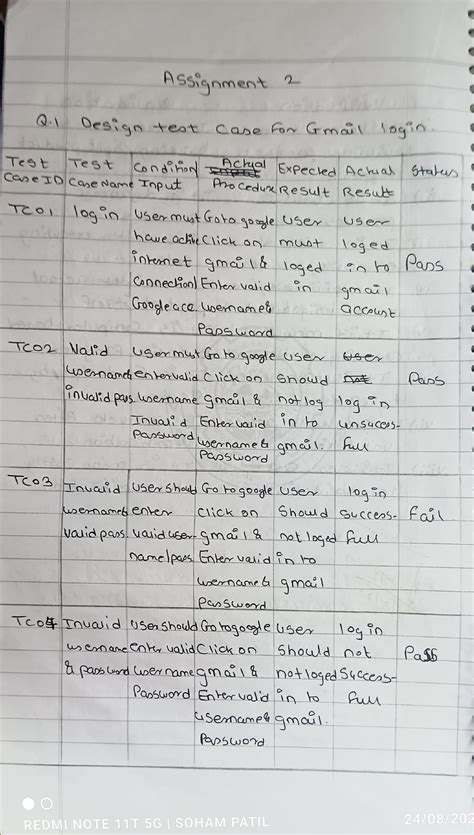 Assignment 2
Q.1 Design test case for Gmail login.
Test Test Condition Actual Expected Actual Status
Case ID Case Name Input Procedure Result Result
TC01 login User must Go to google User user
have active Click on must loged Pass
internet gmail & loged in to
Connection/ Enter valid in gmail
Google acc username & account
Password
TC02 Valid User must Go to google User user
username & enter valid Click on should Pass
invalid pass username gmail & not log log in
Invalid Enter valid in to unsucess-
Password username & gmail. full
Password
TC03 Invalid User should Go to google User login
username & enter click on Should success- fail
valid pass valid user gmail & not loged full
name/pass Enter valid in to
username & gmail
Password
TC04 Invalid User should Go to google User login
username enter valid Click on should not Pass
& password username gmail & not loged Success-
Password Enter valid in to full
username & gmail.
Password
REDMI NOTE 11T 5G | SOHAM PATIL 24/08/202